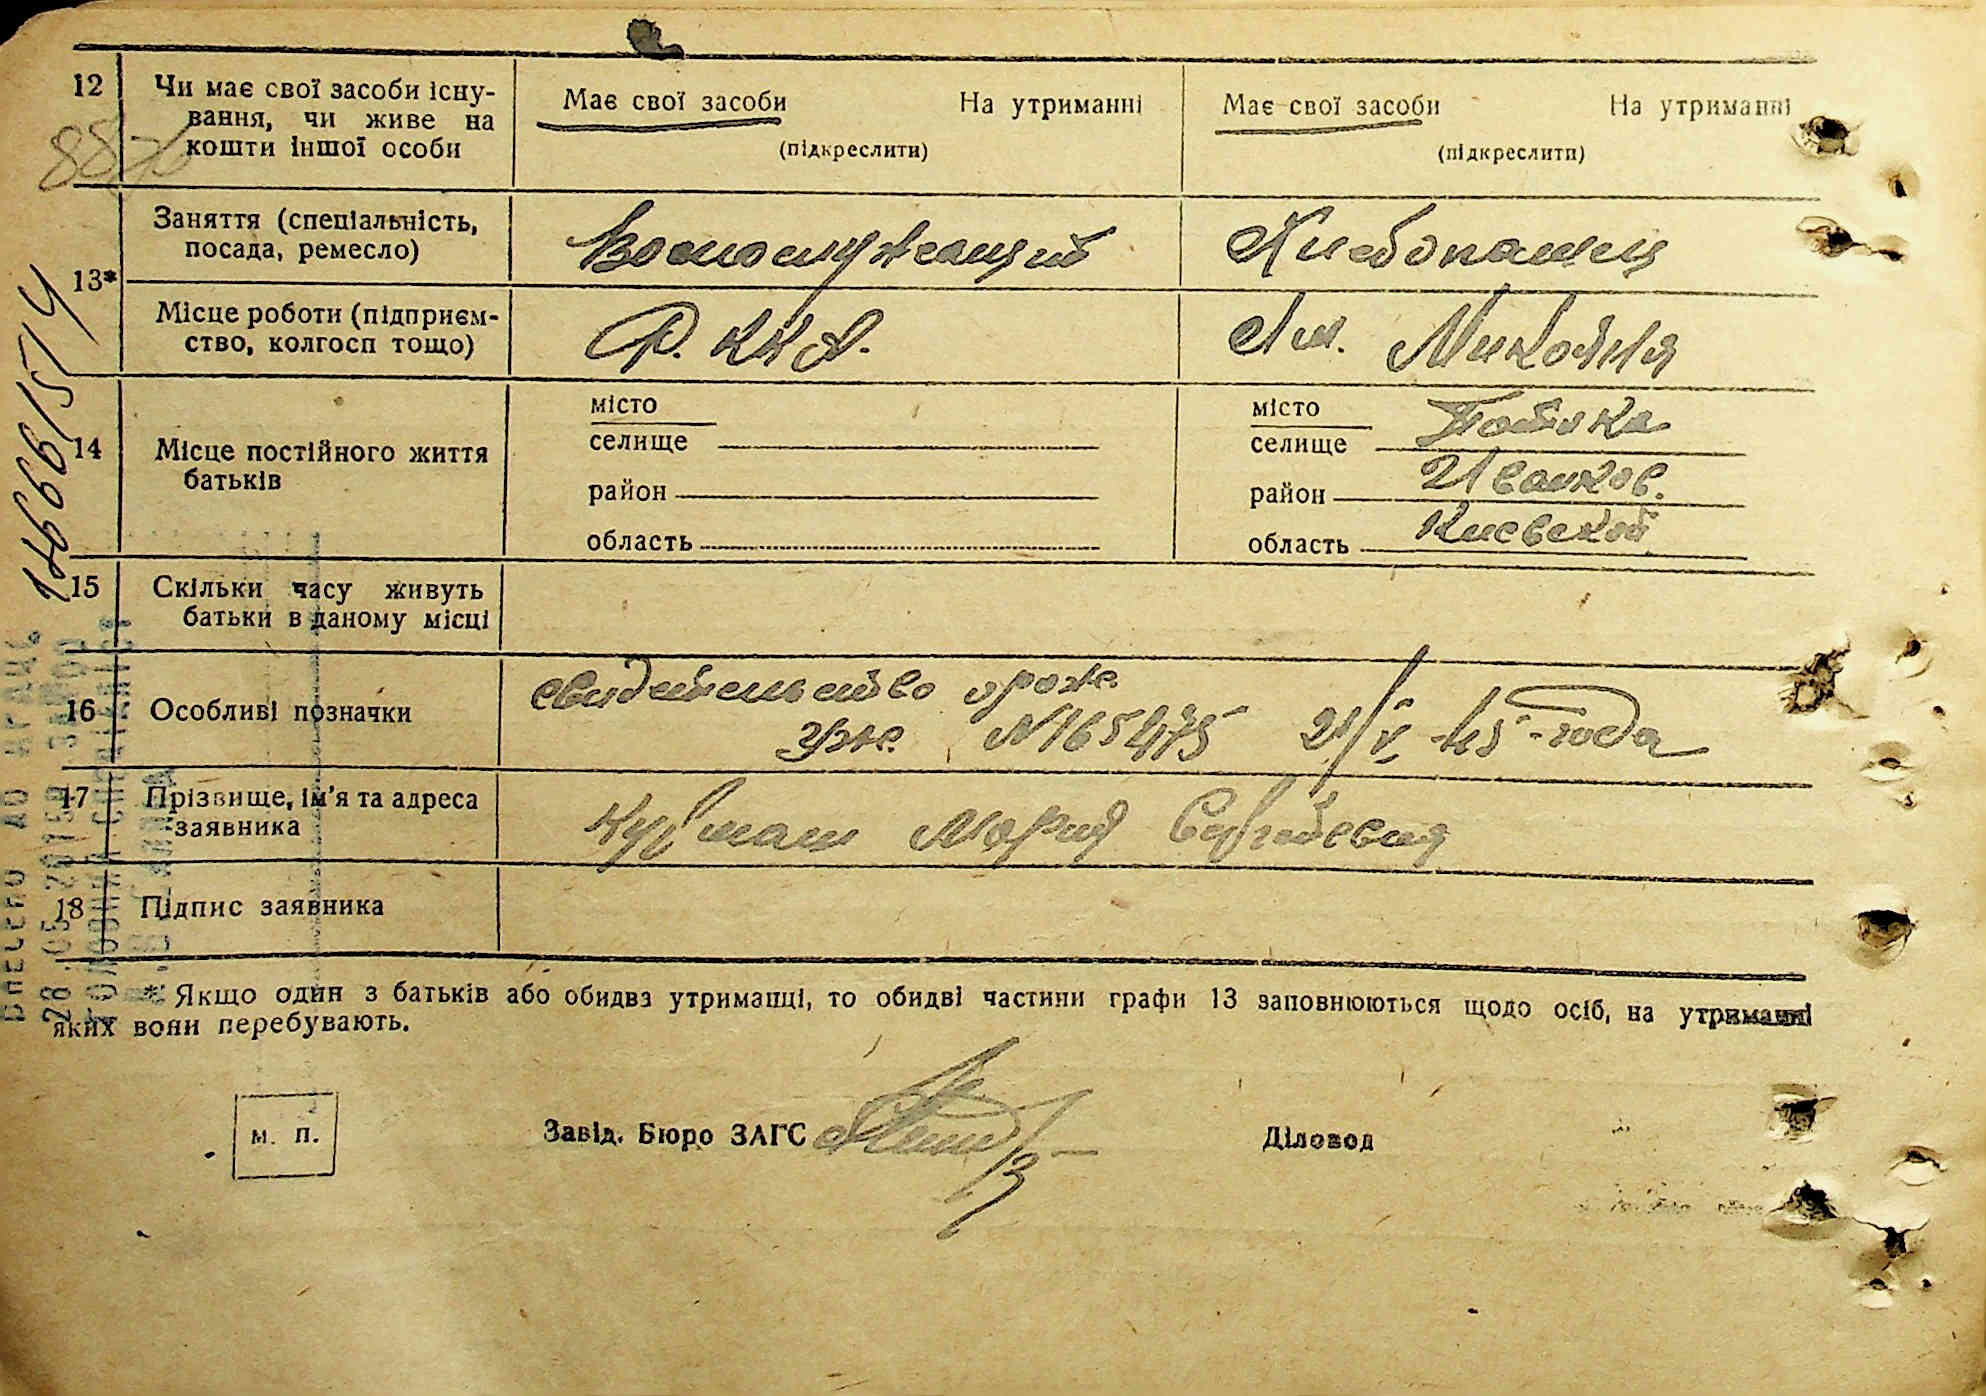 12 Чи має свої засоби існу- Має свої засоби На утриманні Має свої засоби На утриманні
вання, чи живе на
кошти іншої особи (підкреслити) (підкреслити)
Заняття (спеціальність, Военослужащий Хлебопашец
посада, ремесло)
13*
Місце роботи (підприєм- Р.ККА. Им. Микояна
ство, колгосп тощо)
14 Місце постійного життя
батьків
місто
селище
район
область
місто
селище
район Иванков.
область Киевской
15 Скільки часу живуть
батьки в даному місці
16 Особливі позначки свидетельство о рожд.
№ 165475 21/V-45 года
17 Прізвище, ім'я та адреса
заявника Мария Сергеевна
18 Підпис заявника
* Якщо один з батьків або обидва утриманці, то обидві частини графи 13 заповнюються щодо осіб, на утриманні
яких вони перебувають.
м. п. Завід. Бюро ЗАГС Діловод